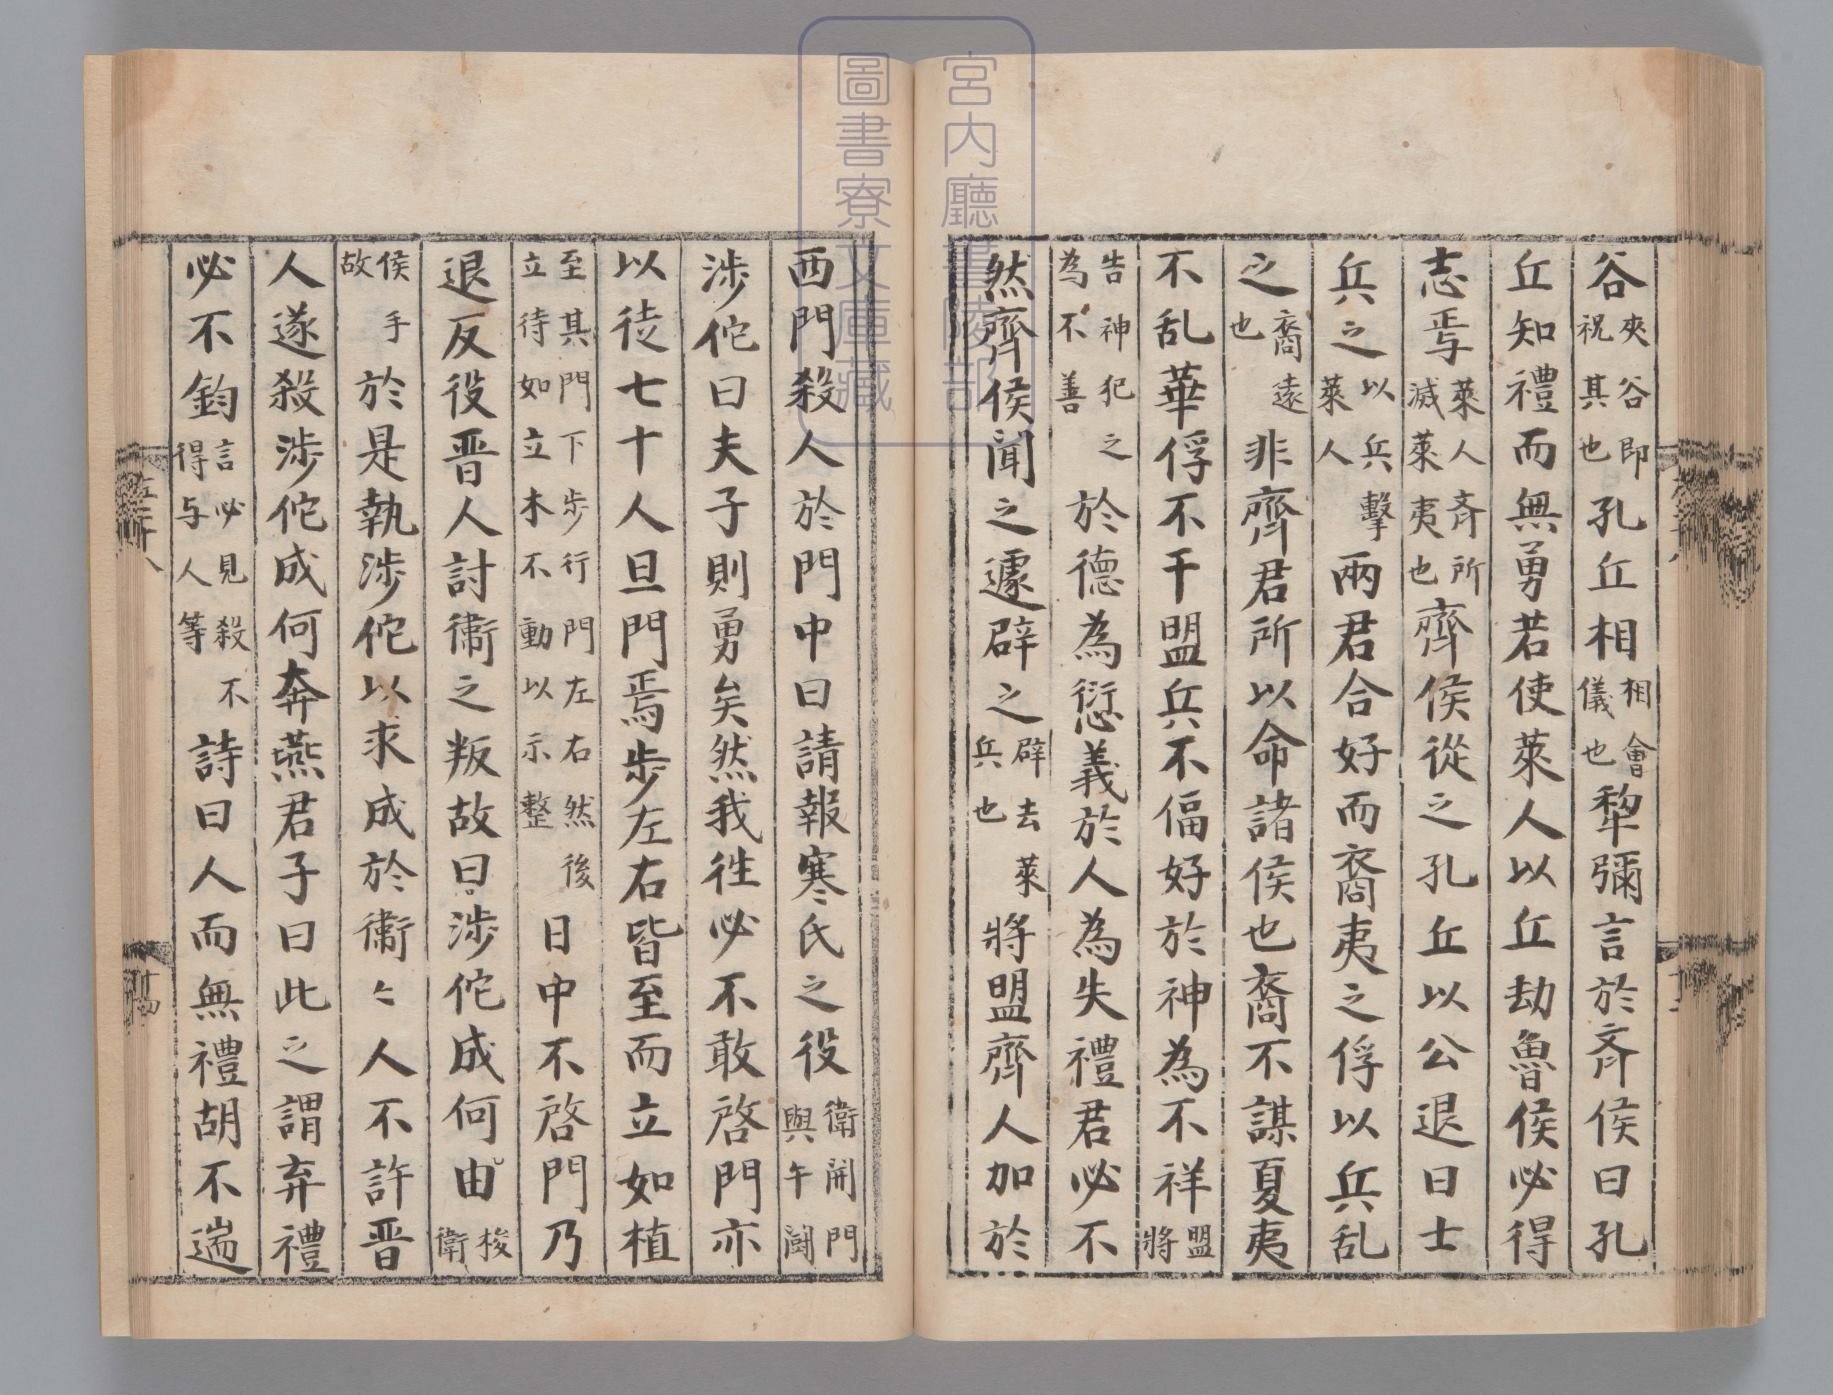 谷夾谷即祝其也孔丘相相會儀也犂彌言於斉侯曰孔
丘知禮而無勇若使萊人以丘劫魯侯必得
志焉萊人斉所滅萊夷也齊侯從之孔丘以公退曰士
兵之以兵擊萊人兩君合好而裔夷之俘以兵乱
之裔遠也非齊君所以命諸侯也裔不謀夏夷
不乱華俘不干盟兵不偪好於神為不祥盟將
告神犯之為不善於德為愆義於人為失禮君必不
然齊侯聞之遽辟之辟去萊兵也將盟齊人加於
西門殺人於門中曰請報寒氏之役衛開門與午闘
涉佗曰夫子則勇矣然我往必不敢啓門亦
以徒七十人旦門焉步左右皆至而立如植
至其門下步行門左右然後立待如立木不動以示整日中不啓門乃
退反役晋人討衛之叛故曰涉佗成何由梭衛
侯手故於是執涉佗以求成於衛〻人不許晋
人遂殺涉佗成何奔燕君子曰此之謂弃禮
必不鈞言必見殺不得与人等詩曰人而無禮胡不遄
宮内廳書陵部
圖書寮文庫藏